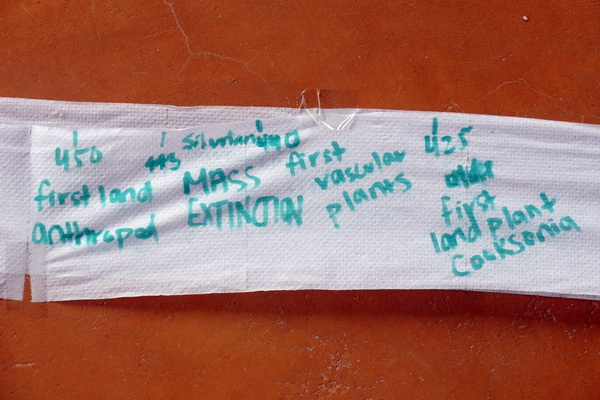 450
first land
anthropod
443
Silurian 440
MASS
EXTINCTION
first
vascular
plants
425
first
land plant
Cooksonia